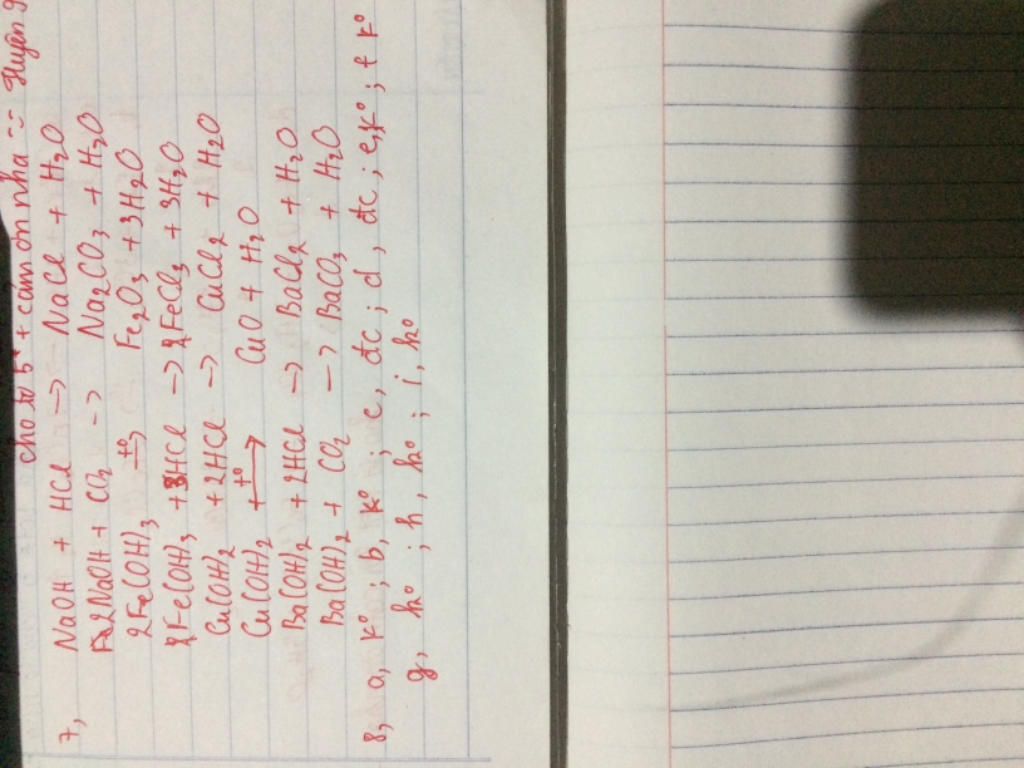 cho tớ 5* + cảm ơn nha
7, NaOH + HCl → NaCl + H2O
2NaOH + CO2 → Na2CO3 + H2O
2Fe(OH)3 t° → Fe2O3 + 3H2O
Fe(OH)3 + 3HCl → FeCl3 + 3H2O
Cu(OH)2 + 2HCl → CuCl2 + H2O
Cu(OH)2 t° → CuO + H2O
Ba(OH)2 + 2HCl → BaCl2 + H2O
Ba(OH)2 + CO2 → BaCO3 + H2O
8, a, k° ; b, k° ; c, đc ; d, đc ; e, k° ; f k°
g, k° ; h, k° ; i, k°